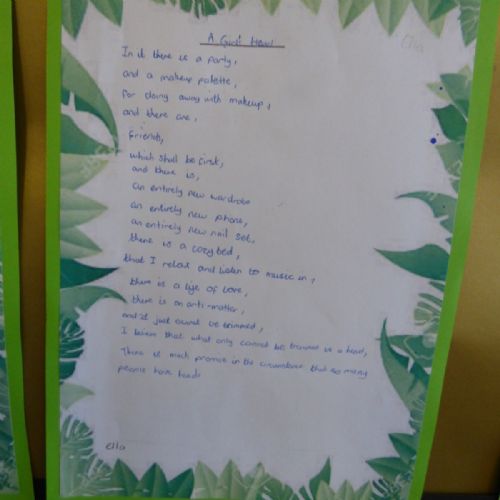 A Girls Head
Ella
In it there is a party,
and a makeup palette,
for doing away with makeup,
and there are,
friends,
which shall be first,
and there is,
an entirely new wardrobe
an entirely new phone,
an entirely new nail set,
there is a cozy bed,
that I relax and listen to music in,
there is a life of love,
there is an anti-matter,
and it just cannot be trimmed,
I believe that what only cannot be trimmed is a head,
There is much promise in the circumstance that so many
people have heads
ella